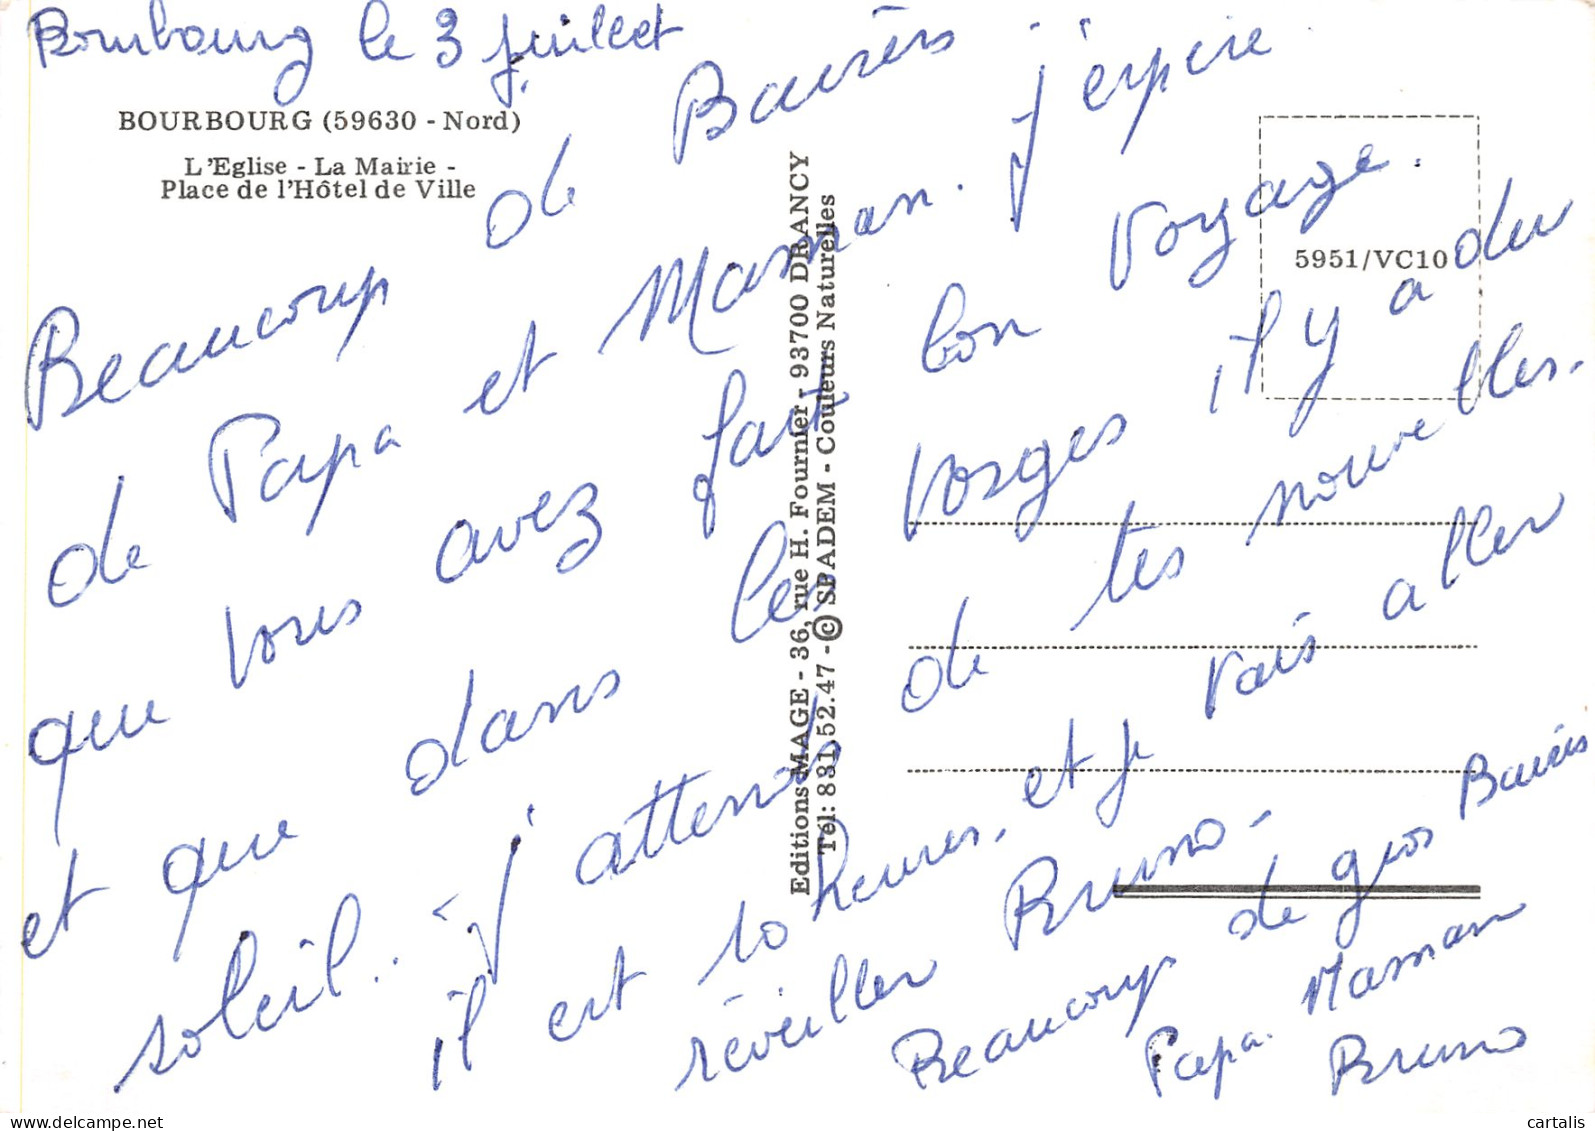 Bourbourg le 3 juillet
BOURBOURG (59630 - Nord)
L'Eglise - La Mairie -
Place de l'Hôtel de Ville
Beaucoup de Baisers
de Papa et Maman. j'espère
que vous avez fait bon voyage.
et que dans les Vosges il y a du
soleil.. j'attends de tes nouvelles.
il est 10 heures. et je vais aller
réveiller Bruno.
Beaucoup de gros Baisers
Papa. Maman
Bruno
Editions MAGE - 36, rue H. Fournier - 93700 DRANCY
Tél: 831.52.47 - © SPADEM - Couleurs Naturelles
5951/VC10
cartalis
delcampe.net